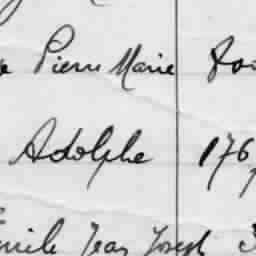 Pierre Marie
Adolphe 176
Emile Jean Joseph